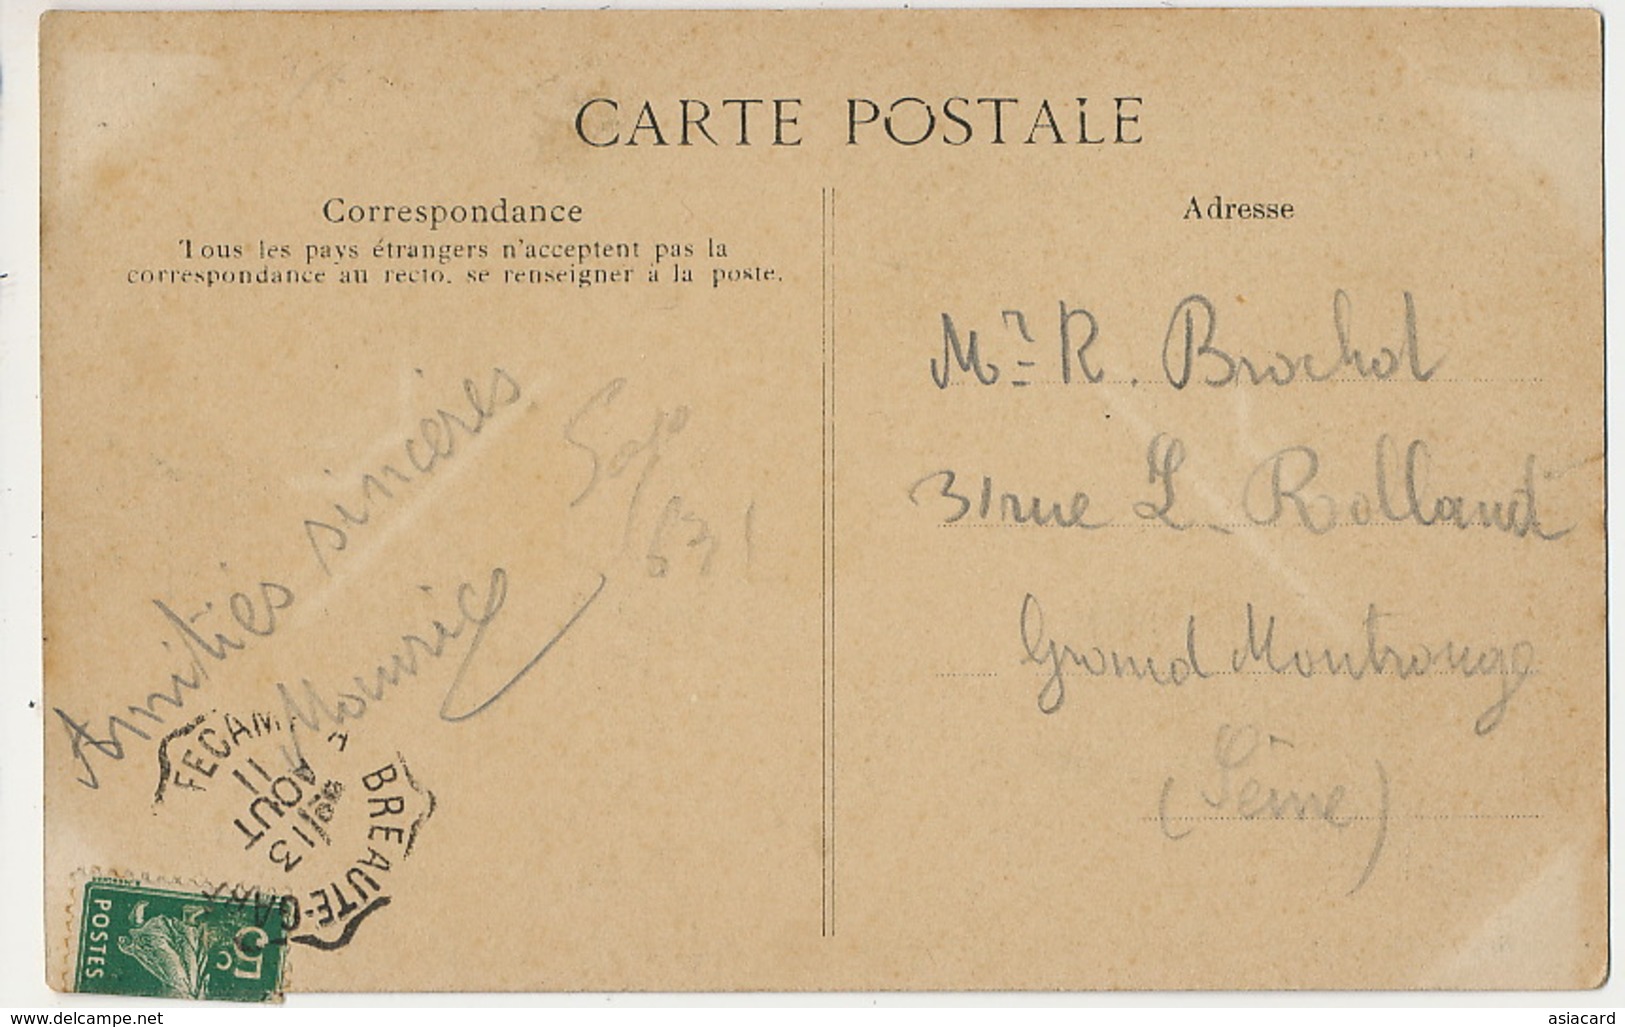 CARTE POSTALE
Correspondance
Tous les pays étrangers n'acceptent pas la
correspondance au recto, se renseigner à la poste.
Adresse
Mr R. Brochot
31 rue L. Rolland
Grand Montrouge
(Seine)
Amitiés sincères
Maurice
631
FECAMP A BREAUTE-GARE
11
AOUT
13
POSTES
5c
www.delcampe.net
asiacard